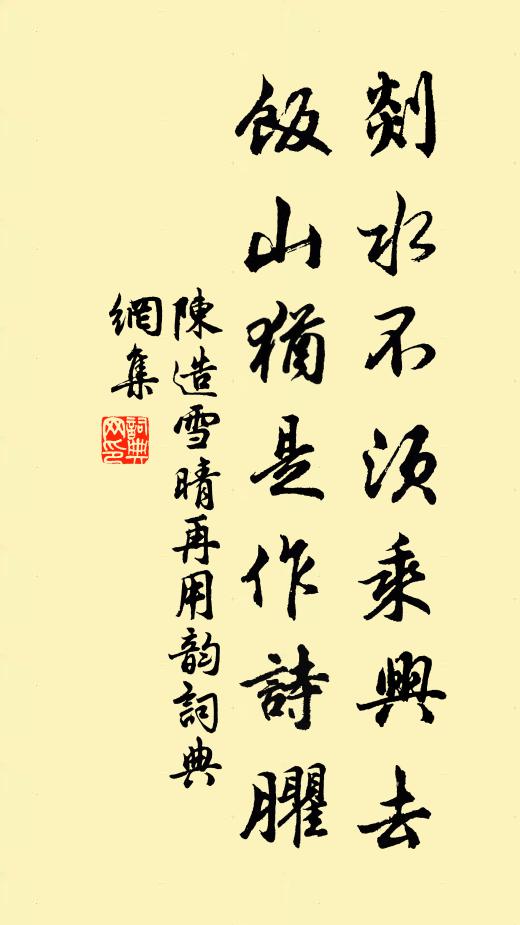 剡水不須乘興去
飯山猶是作詩臞
陳造雪晴再用韵詞典
網集
詞典網印